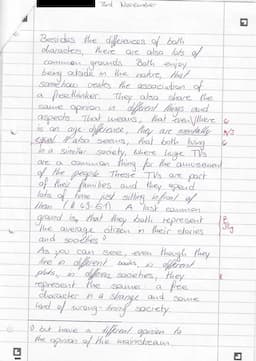 3rd November
Besides the differences of both
characters, there are also lots of
common grounds. Both enjoy
being outside in the nature, that
somehow creates the association of
a freethinker. They also share the
same opinion in different things and
aspects. That means, that even if there
is an age difference, they are mentally
equal. It also seems, that both living
in a similar society, where large TVs
are a common thing for the amusement
of the people. These TVs are part
of their families and they spend
lots of time just sitting infront of
them. A last common
ground is, that they both represent
the average citizen in their stories
and societies
As you can see, even though they
are in different books, in different
plots, in different societies, they
represent the same: a free
character in a strange and some
kind of wrong society.
but have a different opinion to
the opinion of the mainstream.